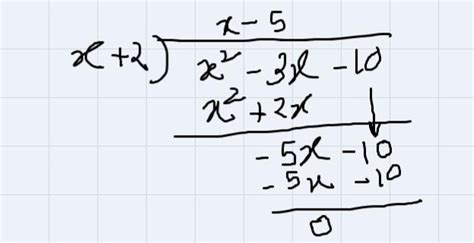 x - 5
x + 2 ) x² - 3x - 10
x² + 2x ↓
- 5x - 10
- 5x - 10
0